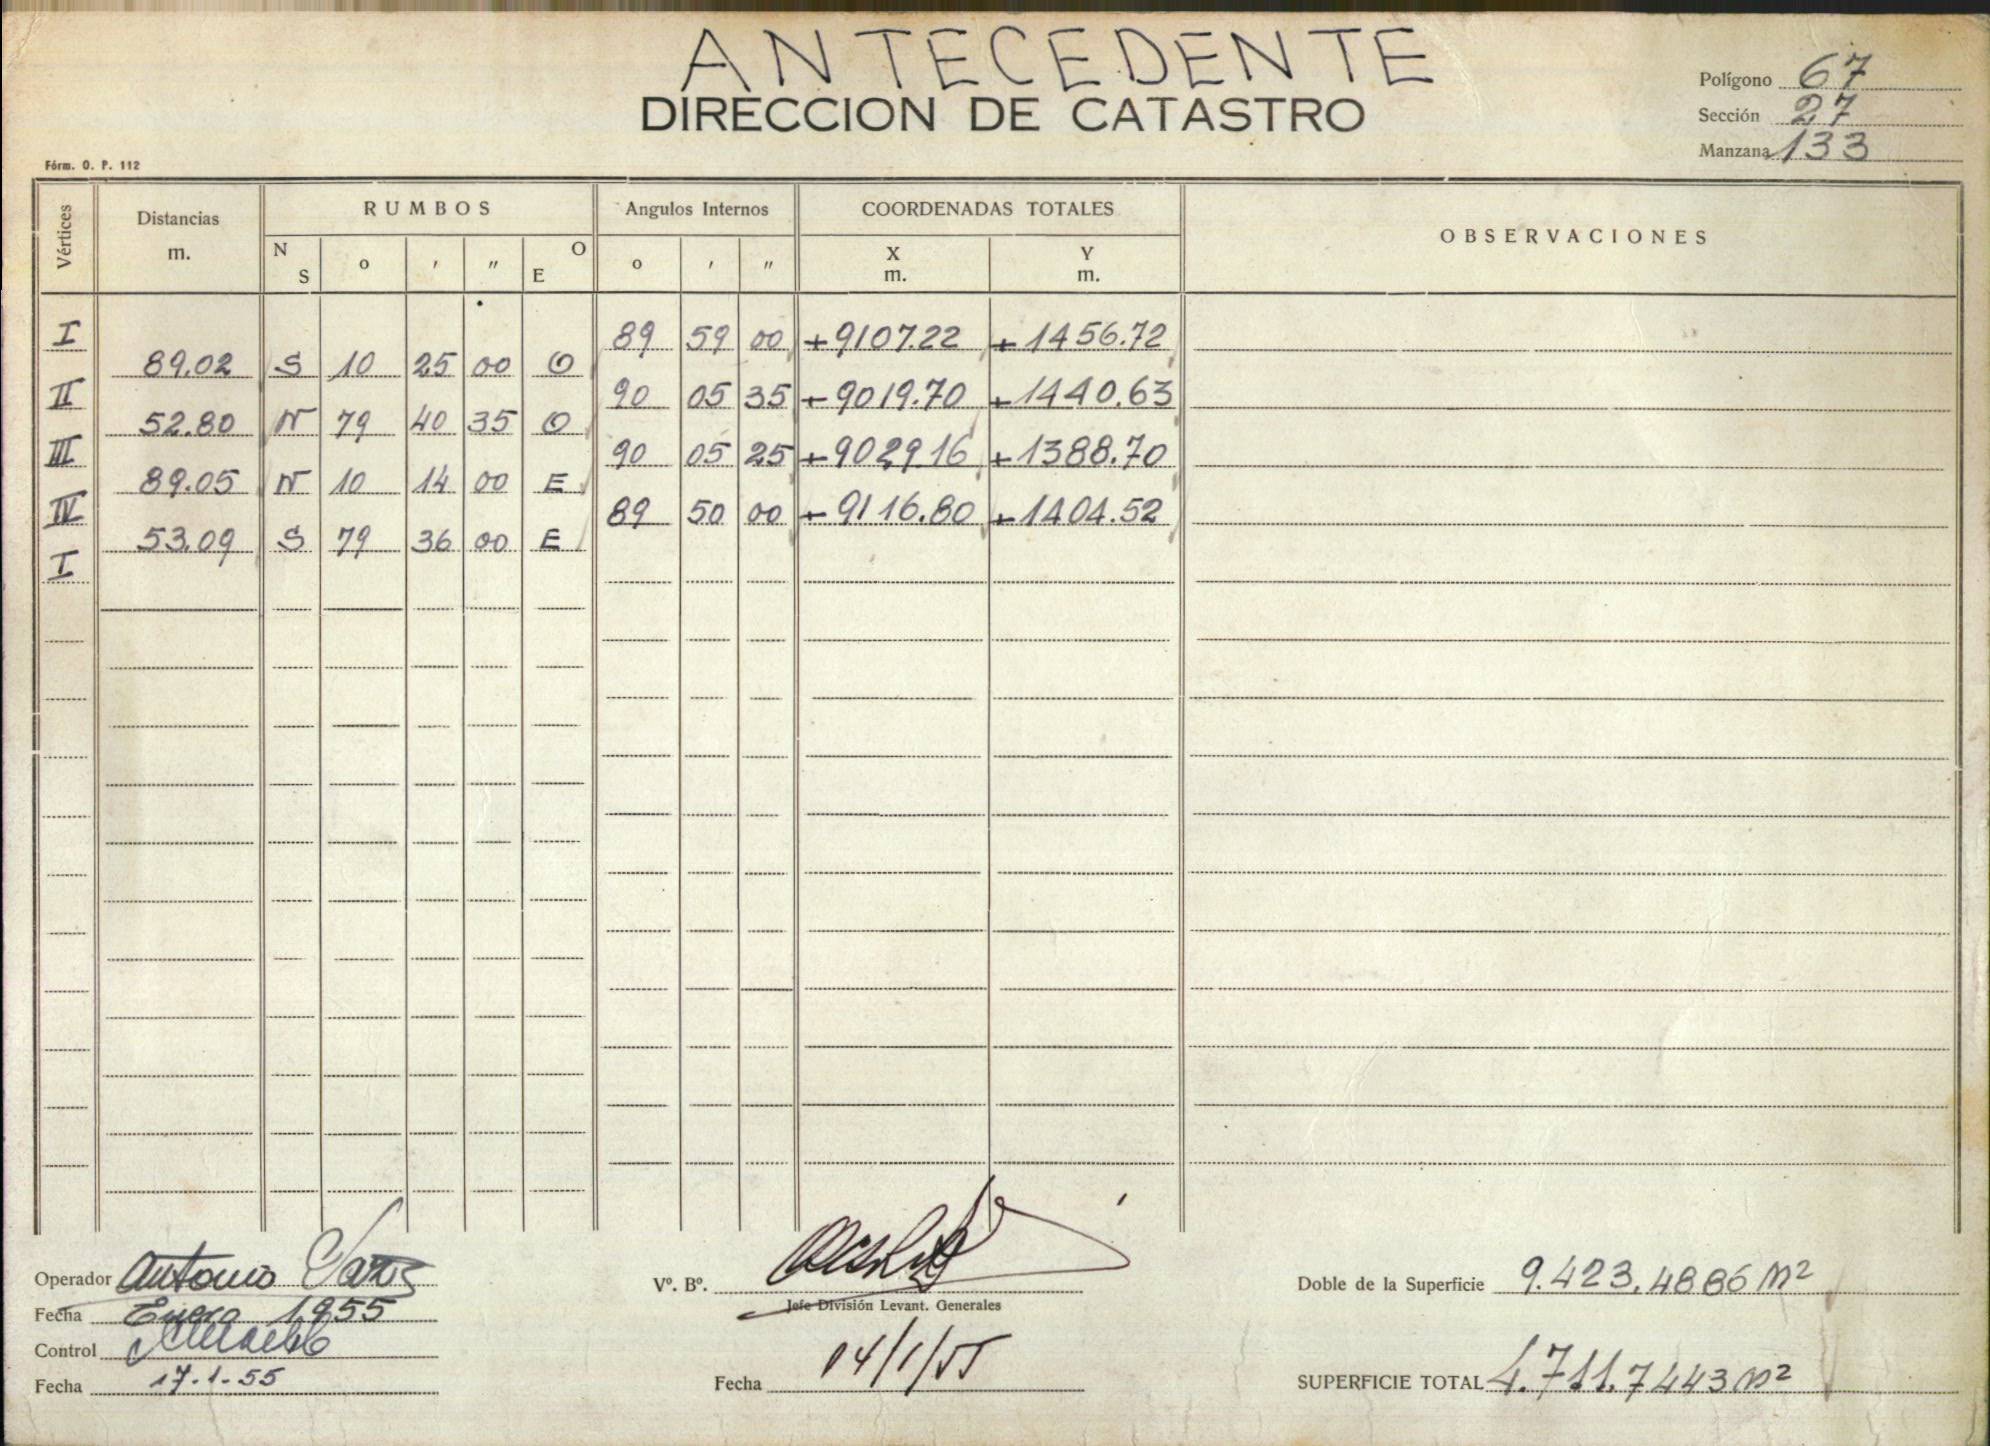 ANTECEDENTE
DIRECCION DE CATASTRO
Polígono 67
Sección 27
Manzana 133
Fórm. O. P. 112
Vértices Distancias m. RUMBOS Angulos Internos COORDENADAS TOTALES OBSERVACIONES
N S o ′ ″ O E o ′ ″ X m. Y m.
I 89 59 00 +9107.22 +1456.72
89.02 S 10 25 00 O
II 90 05 35 +9019.70 +1440.63
52.80 N 79 40 35 O
III 90 05 25 +9029.16 +1388.70
89.05 N 10 14 00 E
IV 89 50 00 +9116.80 +1404.52
53.09 S 79 36 00 E
I
Operador Antonio
Fecha Enero 1955
Control
Fecha 17.1.55
Vº. Bº.
Jefe División Levant. Generales
Fecha 14/1/55
Doble de la Superficie 9.423.4886 m²
SUPERFICIE TOTAL 4.711.7443 m²